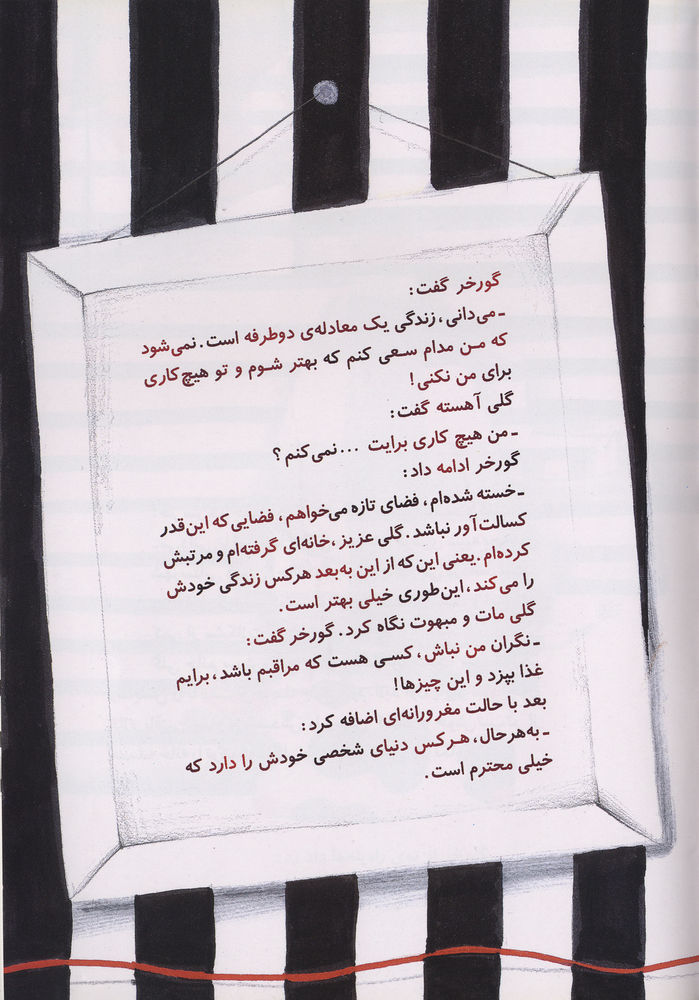 گورخر گفت:
ـ می‌دانی، زندگی یک معادله‌ی دوطرفه است. نمی‌شود
که مـن مدام سـعی کنم که بهتر شـوم و تو هیچ کاری
برای من نکنی!
گلی آهسته گفت:
ـ من هیچ کاری برایت ... نمی‌کنم؟
گورخر ادامه داد:
ـ خسته شده‌ام، فضای تازه می‌خواهم، فضایی‌که این‌قدر
کسالت‌آور نباشد. گلی عزیز، خانه‌ای گرفته‌ام و مرتبش
کرده‌ام. یعنی این‌که از این به‌بعد هرکس زندگی خودش
را می‌کند، این‌طوری خیلی بهتر است.
گلی مات و مبهوت نگاه کرد. گورخر گفت:
ـ نگران من نباش، کسـی هست که مراقبم باشد، برایم
غذا بپزد و این چیزها!
بعد با حالت مغرورانه‌ای اضافه کرد:
ـ به‌هرحال، هـرکس دنیای شخصی خودش را دارد که
خیلی محترم است.